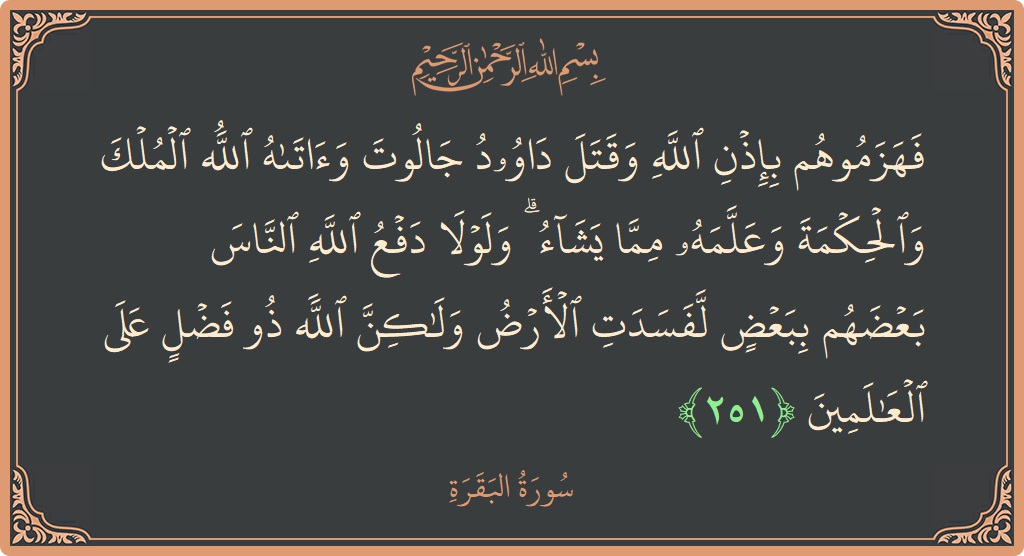 بِسْمِ اللَّهِ الرَّحْمَٰنِ الرَّحِيمِ
فَهَزَمُوهُم بِإِذْنِ ٱللَّهِ وَقَتَلَ دَاوُۥدُ جَالُوتَ وَءَاتَىٰهُ ٱللَّهُ ٱلْمُلْكَ
وَٱلْحِكْمَةَ وَعَلَّمَهُۥ مِمَّا يَشَآءُ ۗ وَلَوْلَا دَفْعُ ٱللَّهِ ٱلنَّاسَ
بَعْضَهُم بِبَعْضٍ لَّفَسَدَتِ ٱلْأَرْضُ وَلَٰكِنَّ ٱللَّهَ ذُو فَضْلٍ عَلَى
ٱلْعَٰلَمِينَ ﴿٢٥١﴾
سُورَةُ البَقَرَةِ